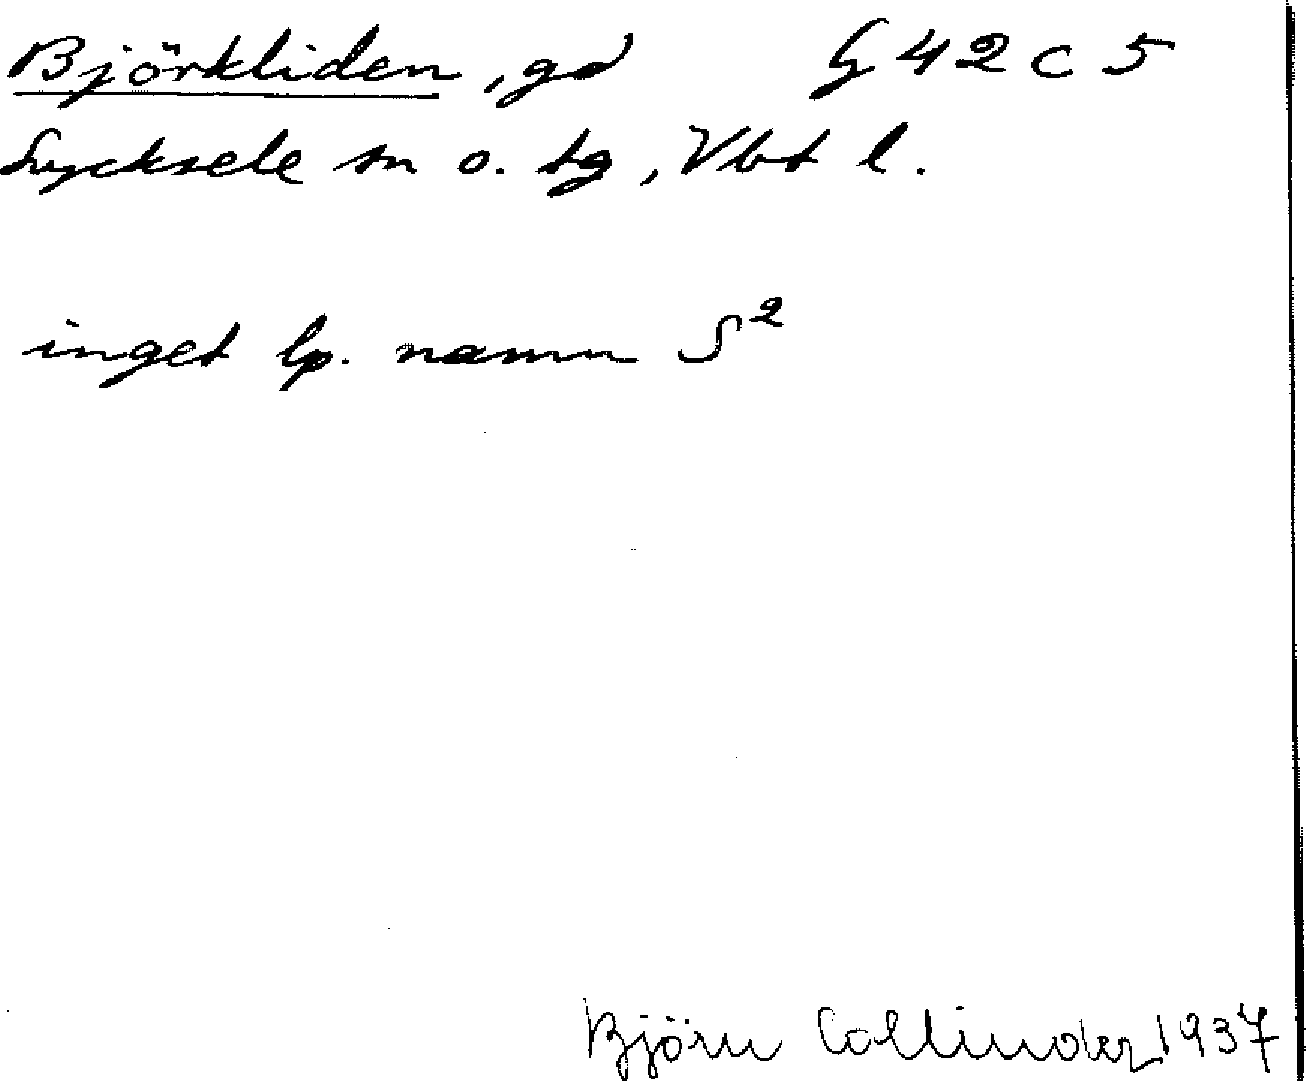 Björkliden, gd G 42 c 5
Lycksele sn o. tg, Vbt l.
inget lp. namn S²
Björn Collinder 1937